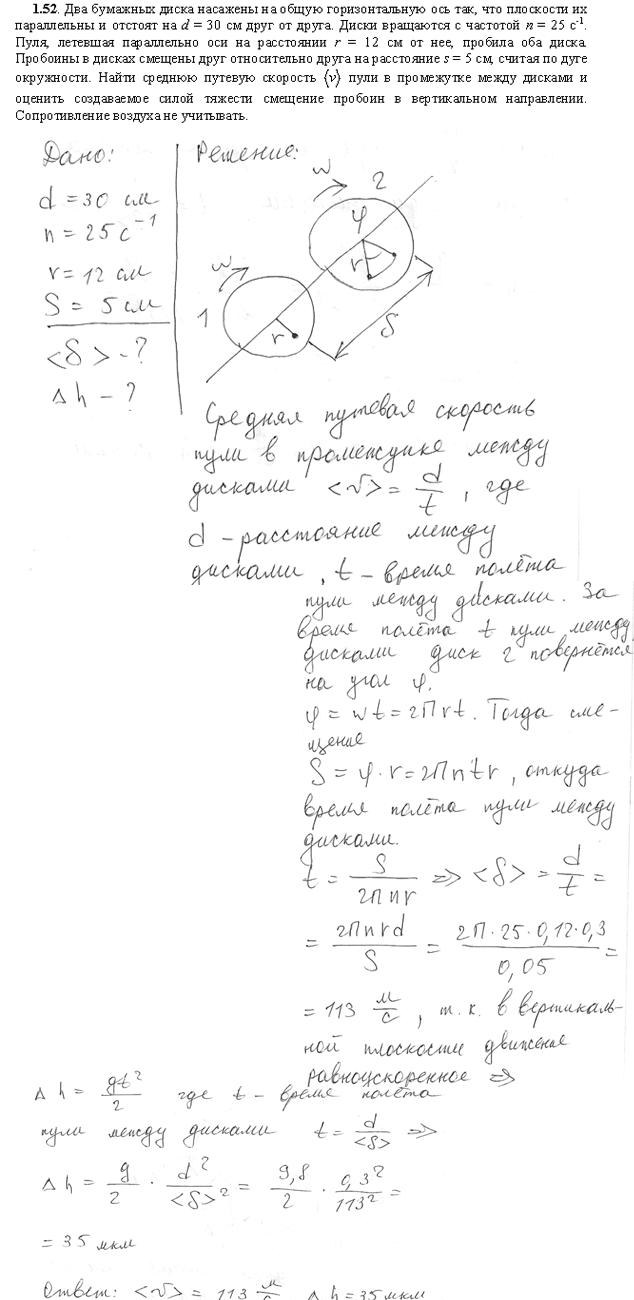 1.52. Два бумажных диска насажены на общую горизонтальную ось так, что плоскости их
параллельны и отстоят на d = 30 см друг от друга. Диски вращаются с частотой n = 25 с⁻¹.
Пуля, летевшая параллельно оси на расстоянии r = 12 см от нее, пробила оба диска.
Пробоины в дисках смещены друг относительно друга на расстояние s = 5 см, считая по дуге
окружности. Найти среднюю путевую скорость ⟨v⟩ пули в промежутке между дисками и
оценить создаваемое силой тяжести смещение пробоин в вертикальном направлении.
Сопротивление воздуха не учитывать.
Дано:
d = 30 см
n = 25 с⁻¹
r = 12 см
S = 5 см
<δ> - ?
Δh - ?
Решение:
w 2
φ
r
w
1
r
δ
Средняя путевая скорость
пули в промежутке между
дисками <v> = d/t , где
d - расстояние между
дисками, t - время полёта
пули между дисками. За
время полёта t пули между
дисками диск 2 повернётся
на угол φ.
φ = wt = 2πrt. Тогда сме-
щение
S = φ·r = 2πntr, откуда
время полёта пули между
дисками.
t = S/2πnr => <δ> = d/t =
= 2πnrd/S = 2π·25·0,12·0,3/0,05 =
= 113 м/с, т.к. в вертикаль-
ной плоскости движение
равноускоренное =>
Δh = gt²/2 где t - время полёта
пули между дисками t = d/<δ> =>
Δh = g/2 · d²/<δ>² = 9,8/2 · 0,3²/113² =
= 35 мкм
Ответ: <v> = 113 м/с Δh = 35 мкм